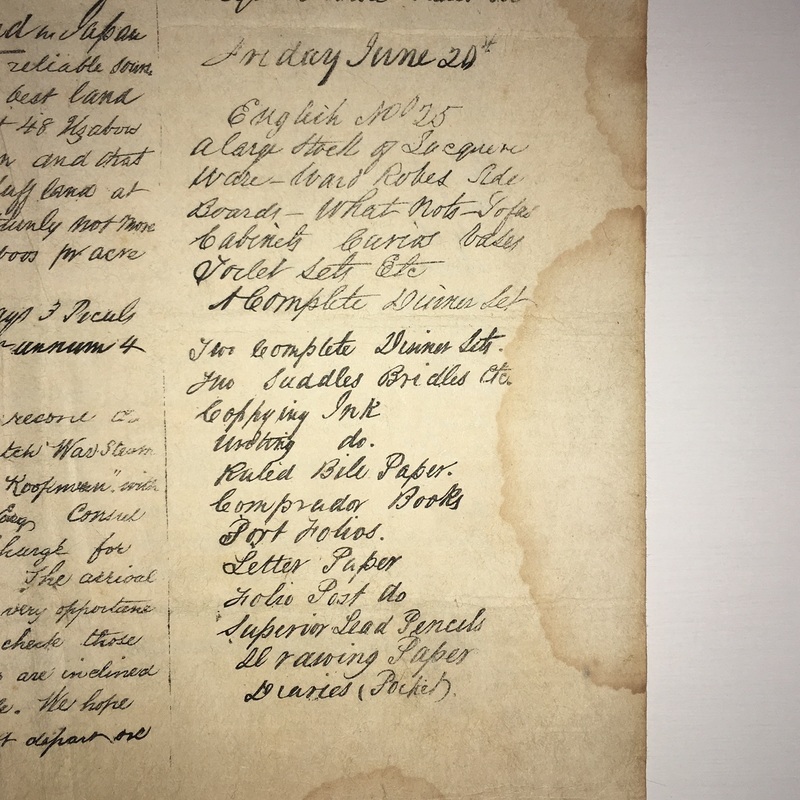 d in Japan
reliable source
best land
48 Tzabow
n and that
luff land at
not more
boos pr acre
ays 3 Piculs
annum 4
resone
tch War Steam
Koopman" with
Consul
harge for
The arrival
very opportune
check those
are inclined
s. We hope
t depart ore
Friday June 20th
English No 25
a large Stock of Lacquer
Ware - Ward Robes Side
Boards - What Nots - Sofas
Cabinets Curios Vases
Toilet Sets Etc
A Complete Dinner Set
Two Complete Dinner Sets.
Two Saddles Bridles Etc
Coppying Ink
Writing do.
Ruled Bill Paper.
Comprador Books
Port Folios.
Letter Paper
Folio Post do
Superior Lead Pencils
Drawing Paper
Diaries (Pocket).